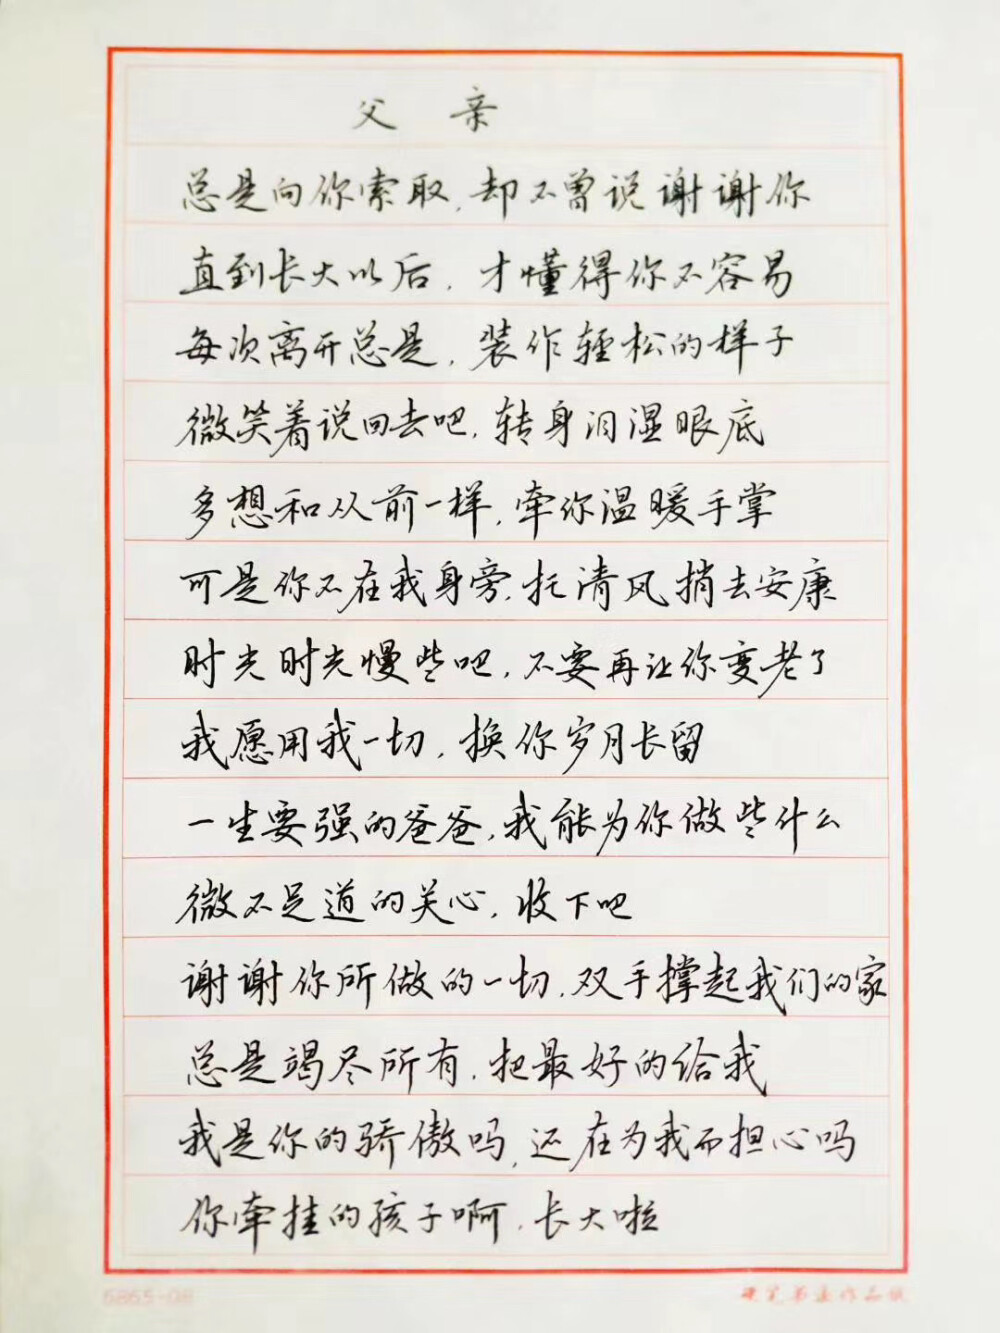 父 亲
总是向你索取，却不曾说谢谢你
直到长大以后，才懂得你不容易
每次离开总是，装作轻松的样子
微笑着说回去吧，转身泪湿眼底
多想和从前一样，牵你温暖手掌
可是你不在我身旁，托清风捎去安康
时光时光慢些吧，不要再让你变老了
我愿用我一切，换你岁月长留
一生要强的爸爸，我能为你做些什么
微不足道的关心，收下吧
谢谢你所做的一切，双手撑起我们的家
总是竭尽所有，把最好的给我
我是你的骄傲吗，还在为我而担心吗
你牵挂的孩子啊，长大啦
6865-08 硬笔书法作品纸